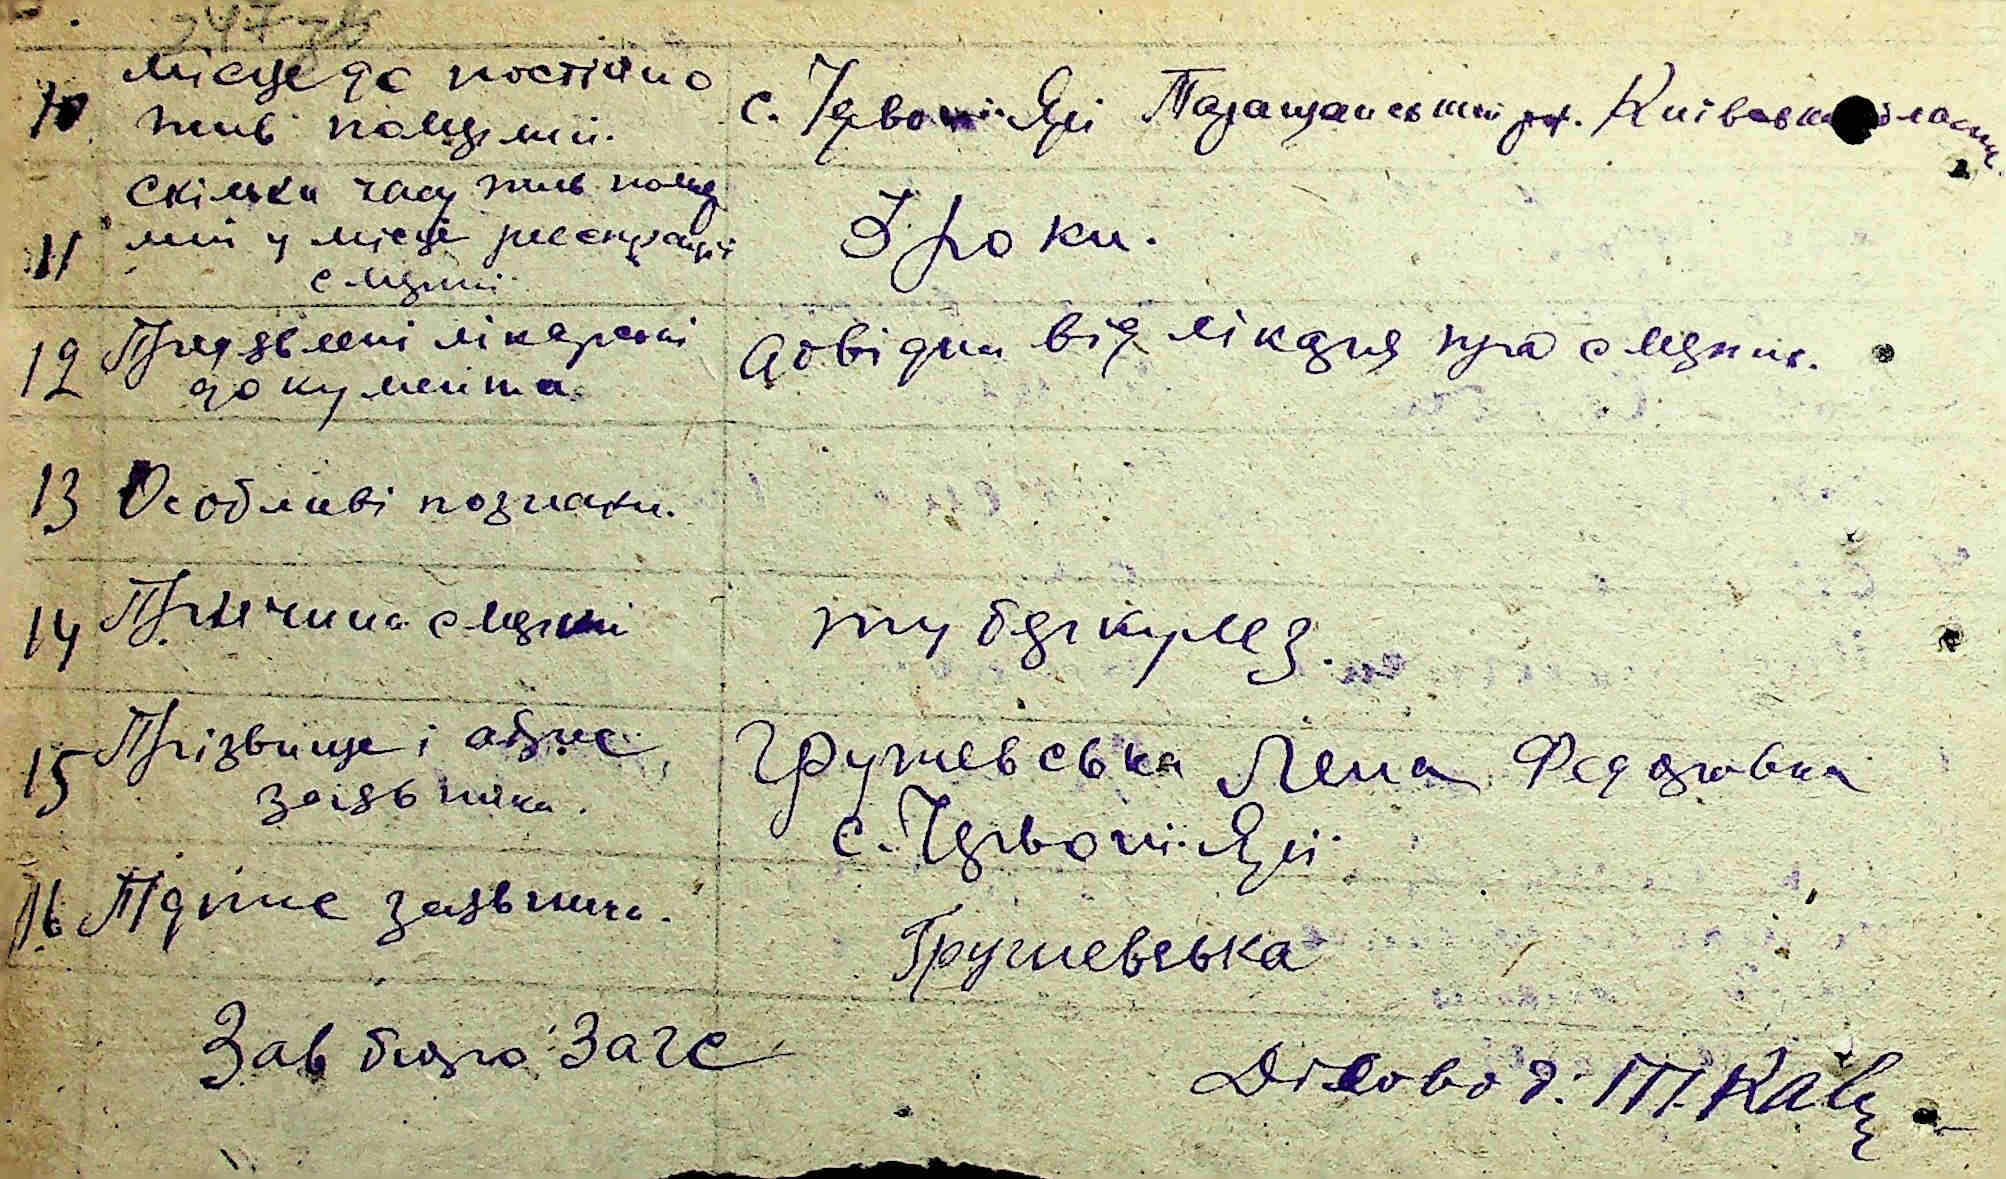 247 зв
10 місце де постійно
жив померлий.
с. Червоні Ярі Таращанський рн. Київської області
11 скільки часу жив помер
лий у місці реєстрації
смерті
3 роки.
12 Предзвлені лікарські
документа
довідка від лікаря про смерть.
13 Особливі познаки.
14 Причина смерті
туберкулез.
15 Прізвище і адрес
заявника.
Грушевська Лена Федоровна
с. Червоні Ярі
16 Підпис заявника.
Грушевська
Зав бюро Загс
Діловод: Т. Кавц